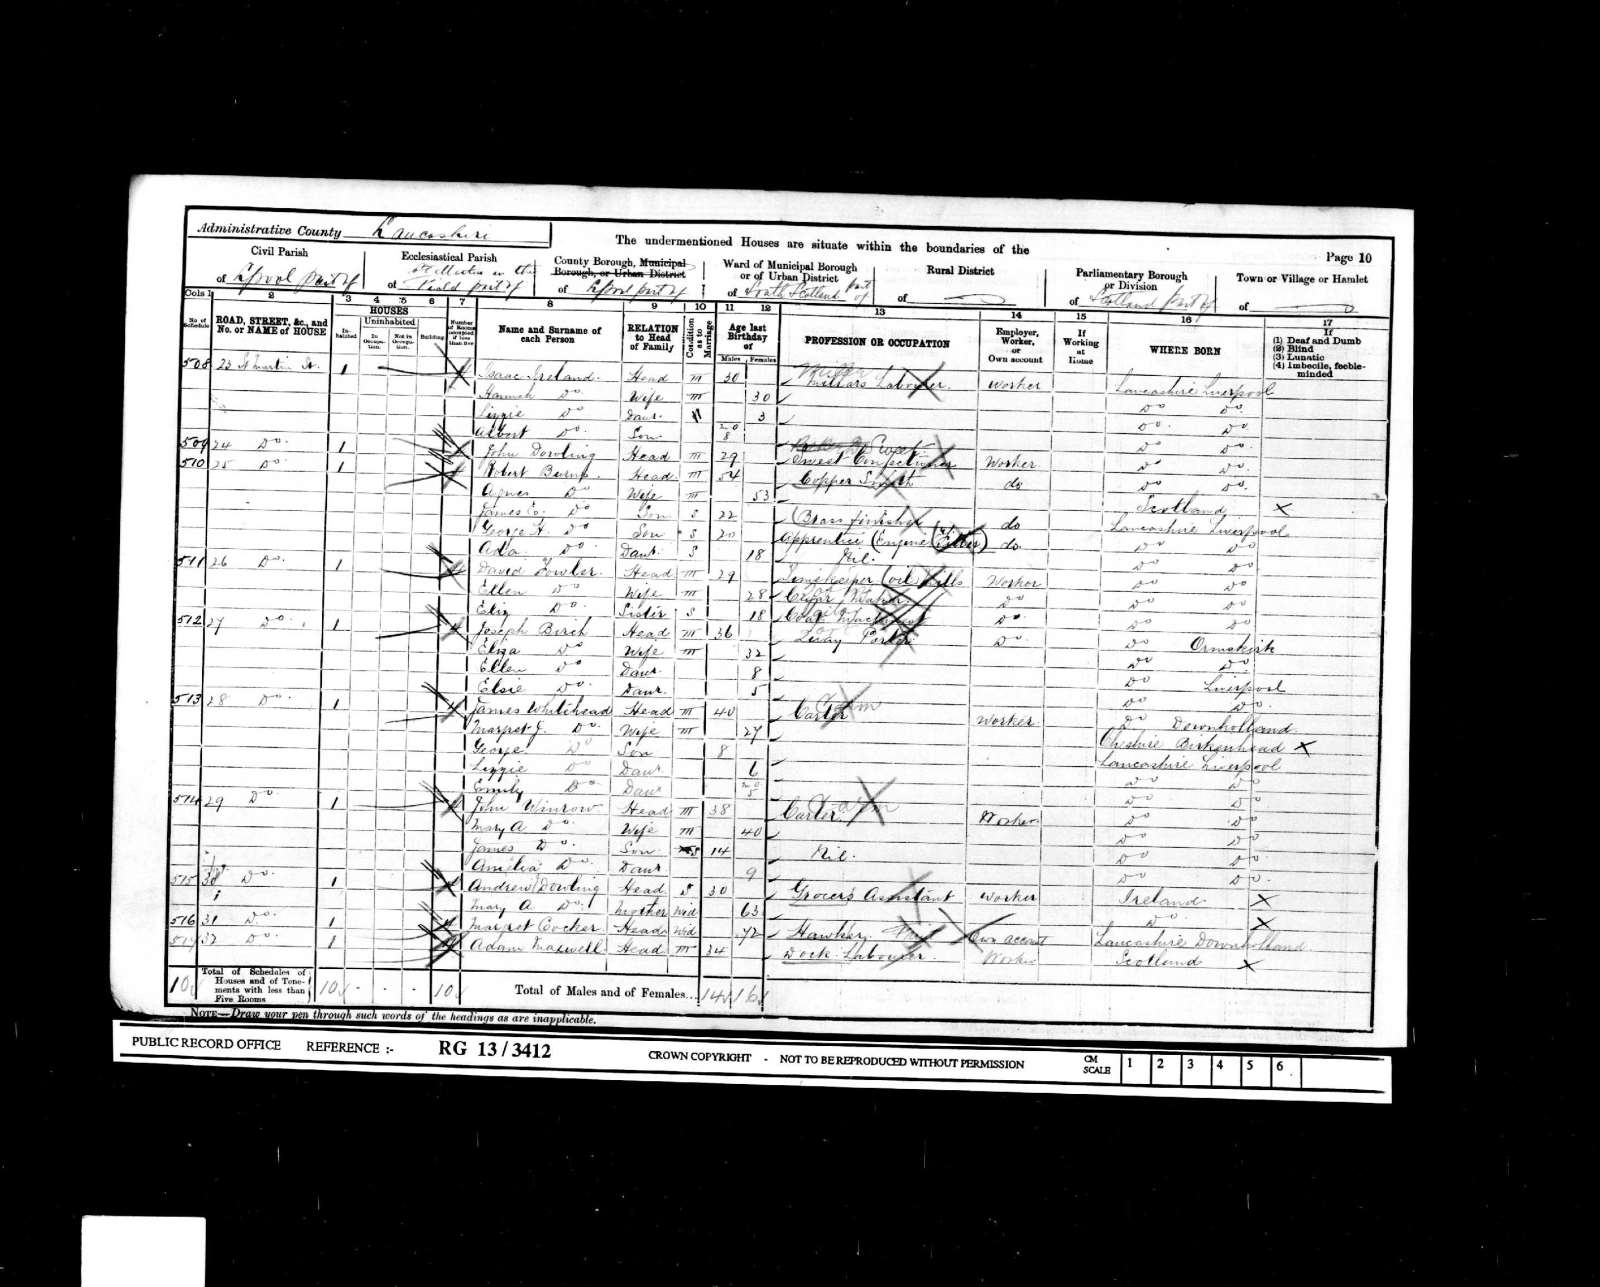 Administrative County Lancashire
The undermentioned Houses are situate within the boundaries of the
Page 10
Civil Parish
of L'pool part of
Ecclesiastical Parish
of in the Field part of
County Borough, Municipal Borough, or Urban District
of L'pool part of
Ward of Municipal Borough or of Urban District
of South Scotland Part of
Rural District
of
Parliamentary Borough or Division
of Scotland part of
Town or Village or Hamlet
of
Cols 1 2 3 4 5 6 7 8 9 10 11 12 13 14 15 16 17
No. of Schedule
ROAD, STREET, &c., and No. or NAME of HOUSE
HOUSES
Inhabited
Uninhabited
In Occupation.
Not in Occupation.
Building
Number of Rooms occupied if less than five
Name and Surname of each Person
RELATION to Head of Family
Condition as to Marriage
Age last Birthday of
Males Females
PROFESSION OR OCCUPATION
Employer, Worker, or Own account
If Working at Home
WHERE BORN
If
(1) Deaf and Dumb
(2) Blind
(3) Lunatic
(4) Imbecile, feeble-minded
508 23 St Martin St. 1 4 Isaac Ireland. Head m 30 Millars Labourer. Worker Lancashire Liverpool
Hannah Do Wife m 30 Do Do
Lizzie Do Daur. 3 Do Do
Albert Do. Son 8 Do Do.
509 24 Do. 1 John Dowling Head m 29 Sweet Confectioner Worker Do Do.
510 25 Do. 1 4 Robert Head m 54 Copper Smith do Do Do.
Agnes Do Wife m 53 Scotland
James E. Do Son S 22 Brass finisher do Lancashire Liverpool
George H. Do Son S 20 Apprentice (Engine Fitter) do Do Do
Ada Do Daur. S 18 Nil. Do Do
511 26 Do. 1 4 David Fowler. Head m 29 Timekeeper (oil) Mills Worker Do Do
Ellen Do Wife m 28 Cigar Maker. Do Do Do
Eliz Do. Sister S 18 Coat Machinist Do. Do Do
512 27 Do. 1 4 Joseph Birch Head m 36 Quay Porter Do. Do Ormskirk
Eliza Do Wife m 32 Do Do
Ellen Do Daur. 8 Do Liverpool
Elsie Do. Daur. 5 Do Do.
513 28 Do. 1 4 James Whitehead Head m 40 Carter Worker Do Downholland
Margret J. Do. Wife m 27 Cheshire Birkenhead
George Do Son 8 Lancashire Liverpool
Lizzie Do Daur 6 Do Do
Emily Do Daur 5 Do Do
514 29 Do. 1 4 John Winrow Head m 38 Carter. Worker Do Do
Mary A Do. Wife m 40 Do Do
James Do. Son S 14 Nil. Do Do
Amelia Do. Daur 9 Do Do.
515 30 Do. 1 4 Andrew Dowling Head S 30 Grocers Assistant Worker Ireland
Mary A. Do. Mother Wid 63 Do
516 31 Do. 1 4 Margret Cocker Head Wid 72 Hawker. Own account Lancashire Downholland
517 32 Do 1 4 Adam Maxwell Head m 34 Dock Labourer. Worker Scotland
10 Total of Schedules of Houses and of Tenements with less than Five Rooms 10 10 Total of Males and of Females... 14 16
NOTE—Draw your pen through such words of the headings as are inapplicable.
PUBLIC RECORD OFFICE REFERENCE :- RG 13/3412 CROWN COPYRIGHT - NOT TO BE REPRODUCED WITHOUT PERMISSION CM SCALE 1 2 3 4 5 6